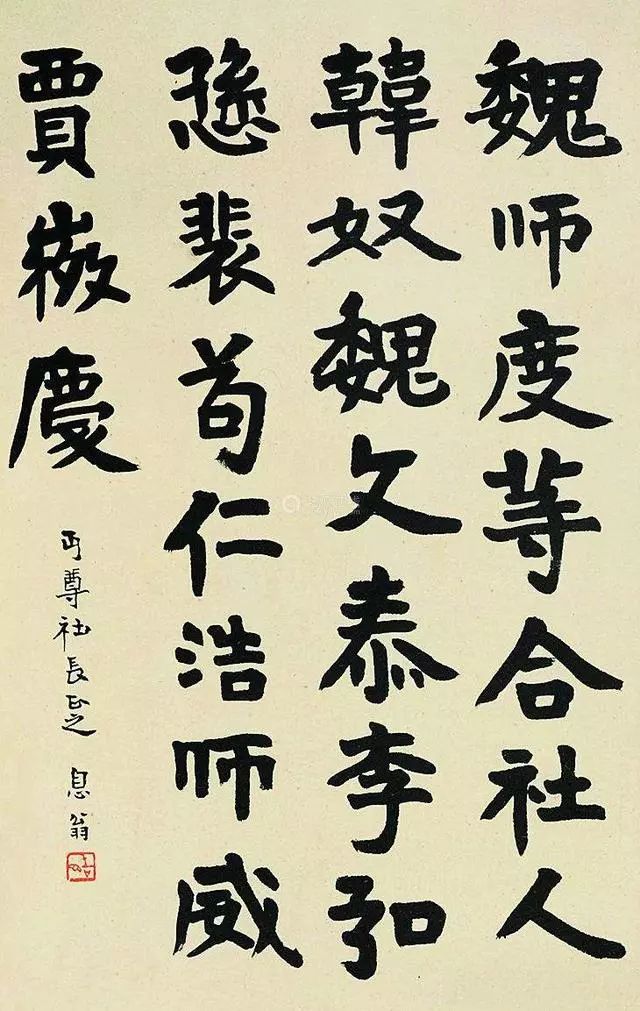 魏师度等合社人
韓奴魏文泰李弘
愻裴苟仁浩师威
賈嶶慶
丏尊社長正之 息翁